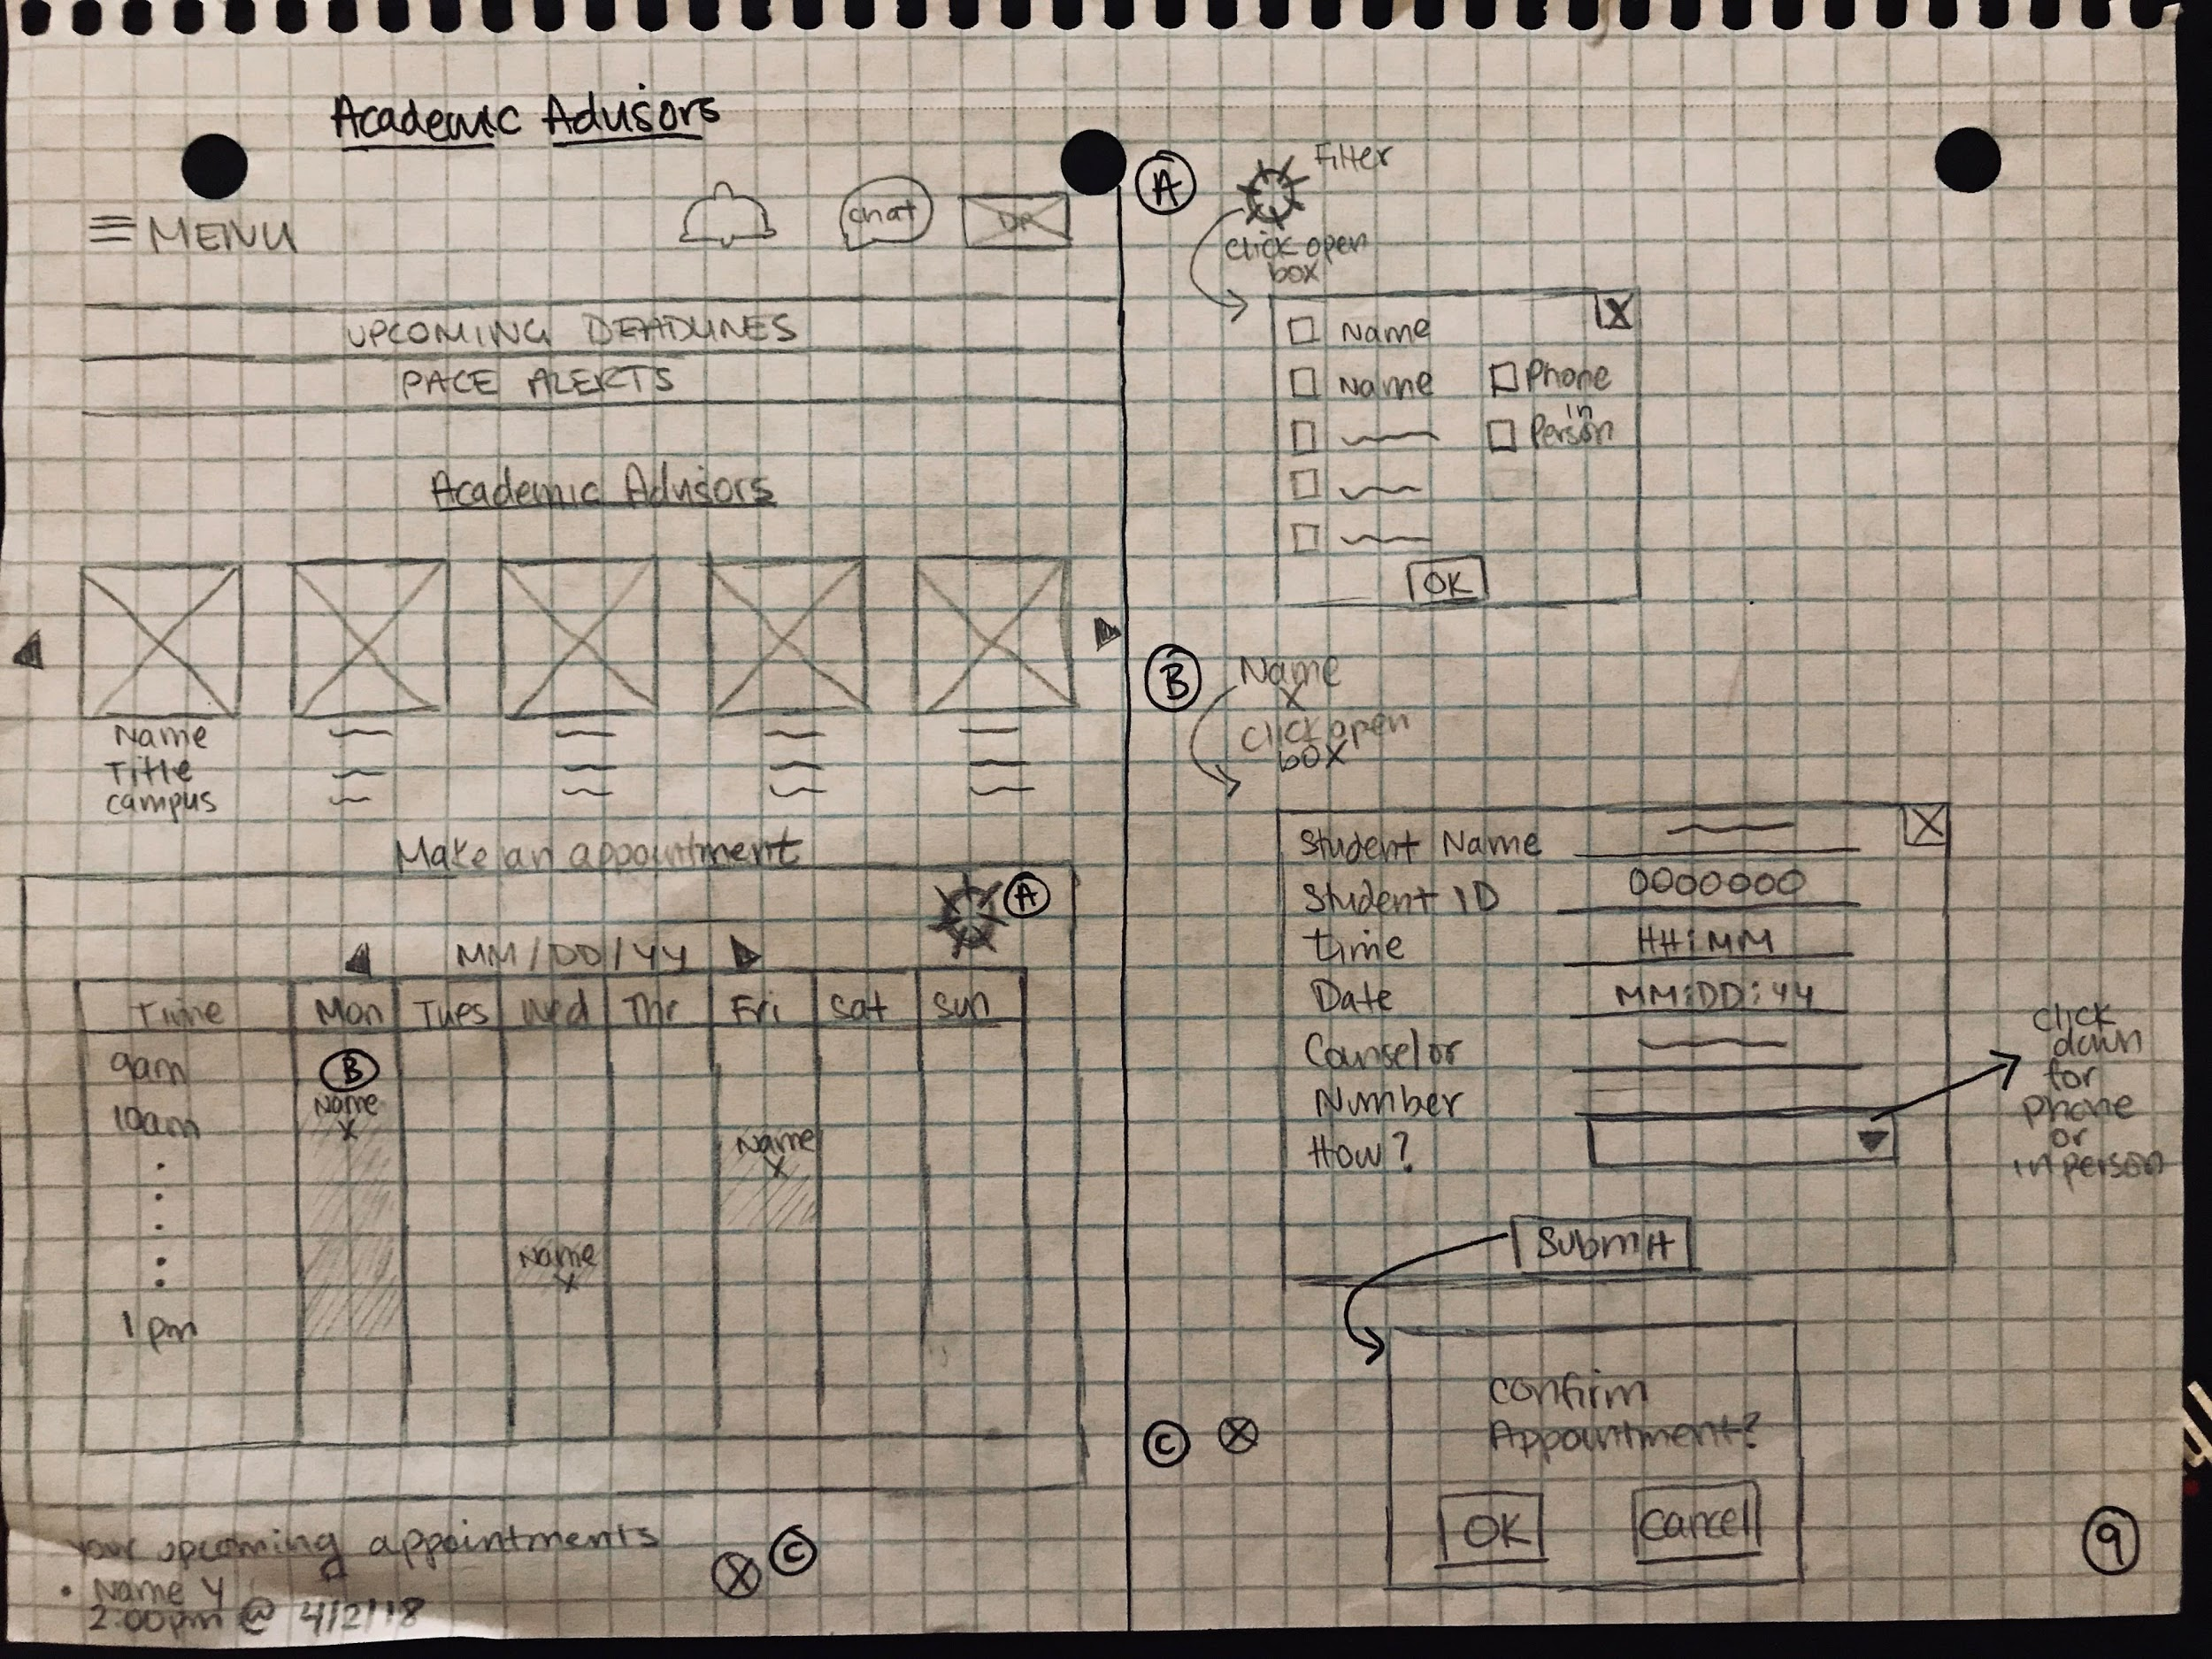 Academic Advisors
MENU
chat
DP
UPCOMING DEADLINES
PACE ALERTS
Academic Advisors
Name
Title
campus
Make an appointment
A
MM/DD/YY
Time Mon Tues Wed Thr Fri Sat Sun
9am B
10am Name
X
Name
X
Name
X
1pm
Your upcoming appointments
C
• Name Y
2:00pm @ 4/2/18
A
Filter
Click open
box
X
Name
Name
Phone
in
Person
OK
B
Name
X
Click open
box
X
Student Name
Student ID 0000000
time HH:MM
Date MM:DD:YY
Counselor
Number
How?
Click
down
for
phone
or
in person
Submit
C
Confirm
Appointment?
OK Cancel
9